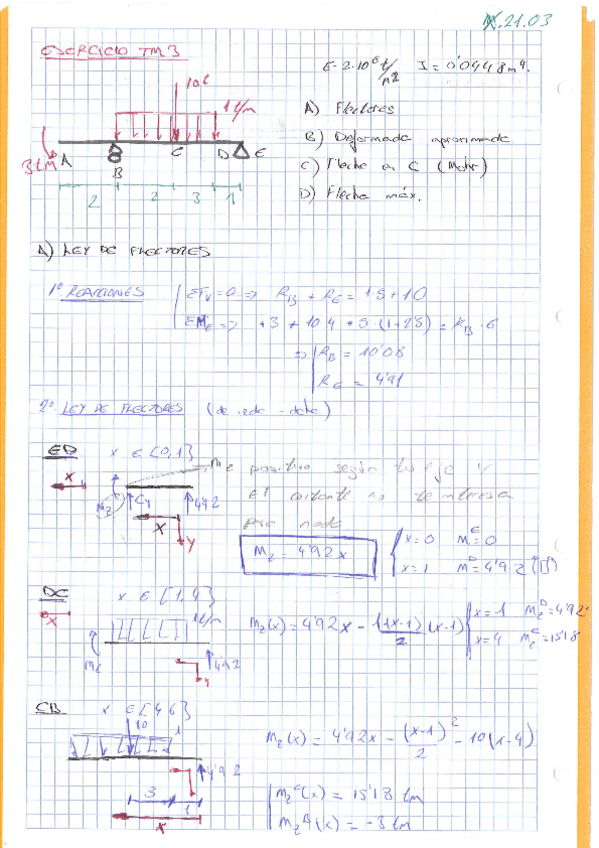 21.03
EJERCICIO TM3
E=2·10⁶ t/m² I=0'0448m⁴.
10t
1t/m
A) Flectores
B) Deformada aproximada
C) Flecha en C (Mohr)
D) Flecha máx.
3tM A B C D E
2 2 3 1
A) LEY DE FLECTORES
1º REACCIONES
ΣFv=0 => RB + RE = 1·5+10
ΣME => +3 + 10·4 + 5·(1+2'5) = RB·6
=> RB = 10'08
RE = 4'91
2º LEY DE FLECTORES (de izda - dcha)
ED x ∈ [0,1]
Mz positivo según tu eje y
el cortante no te interesa
para nada
x
Mz Cy 4'92
x
y
Mz = 4'92x
x=0 M^E=0
x=1 M^D=4'92
DC x ∈ [1,4]
x
1t/m
Mz 4'92
y
Mz(x) = 4'92x - 1(x-1)/2 (x-1)
x=1 Mz^D=4'92
x=4 Mz^C=15'18
CB x ∈ [4,6]
10 1
4'92
3 1
x
Mz(x) = 4'92x - (x-1)²/2 - 10(x-4)
Mz^C(x) = 15'18 tm
Mz^B(x) = -3tm